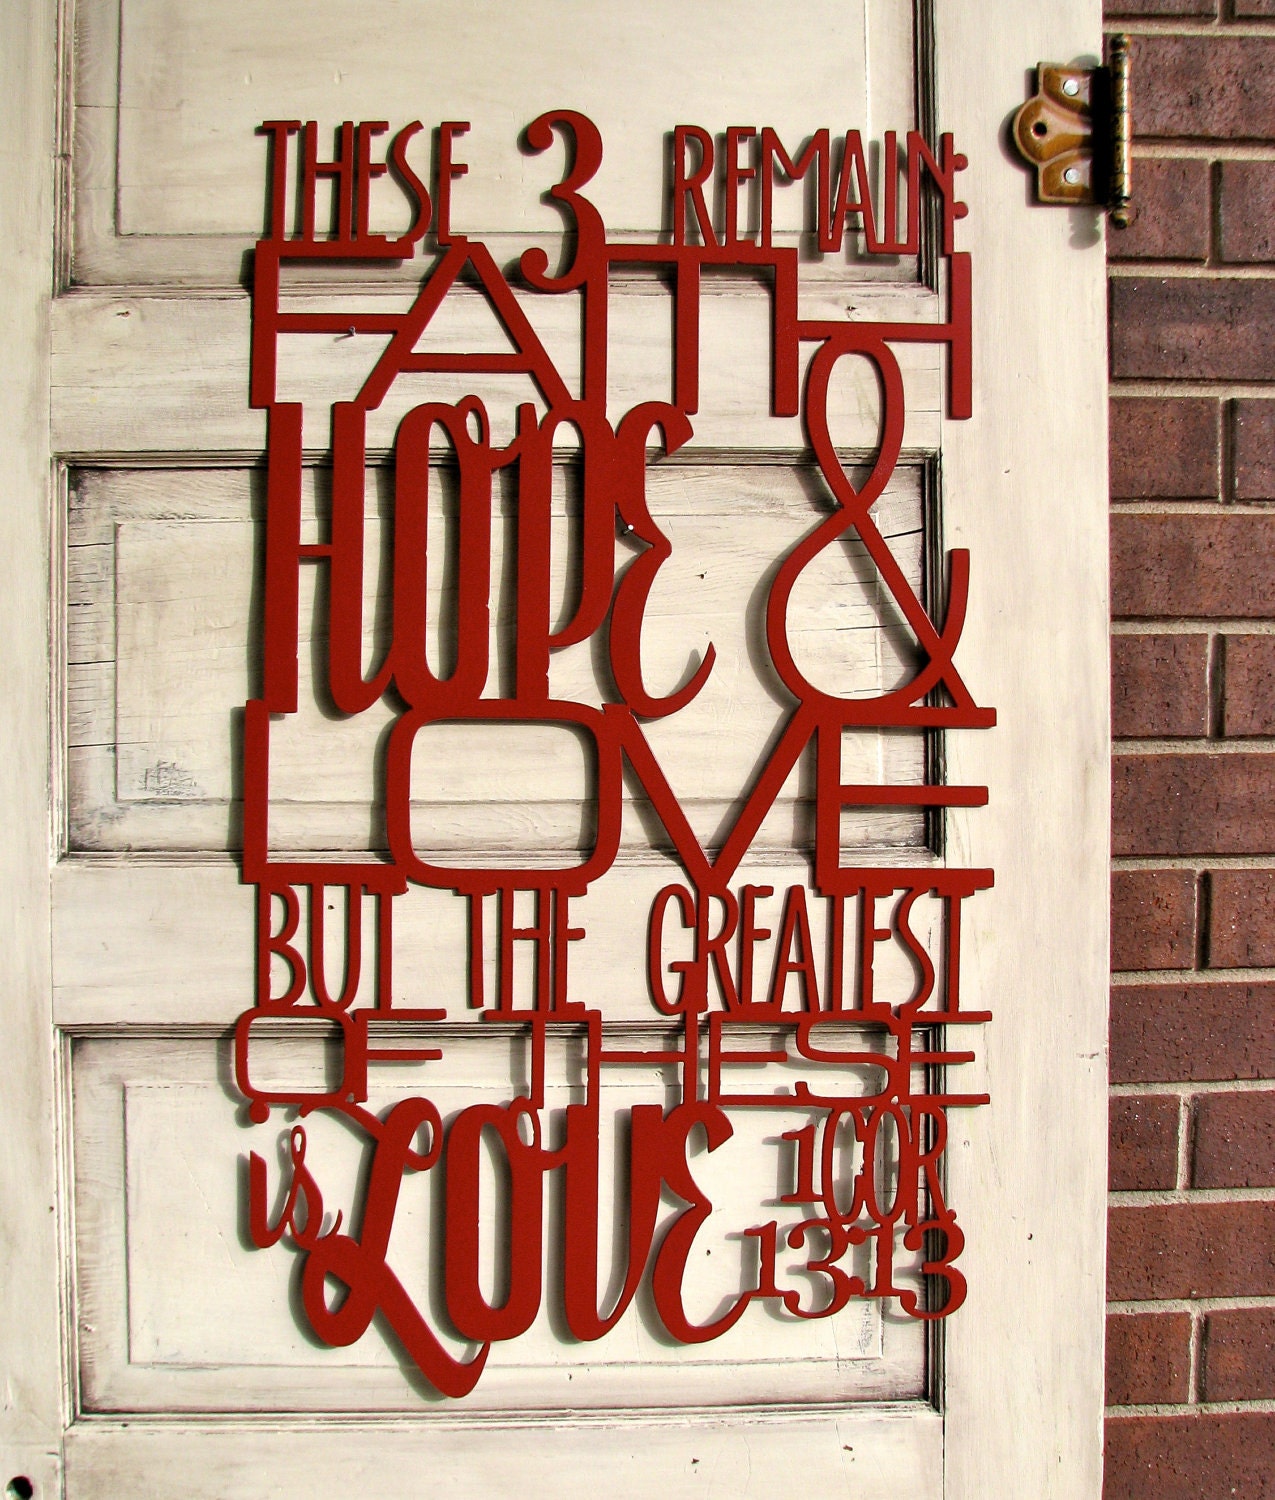 THESE 3 REMAIN:
FAITH
HOPE &
LOVE
BUT THE GREATEST
OF THESE
is LOVE 1 COR.
13:13